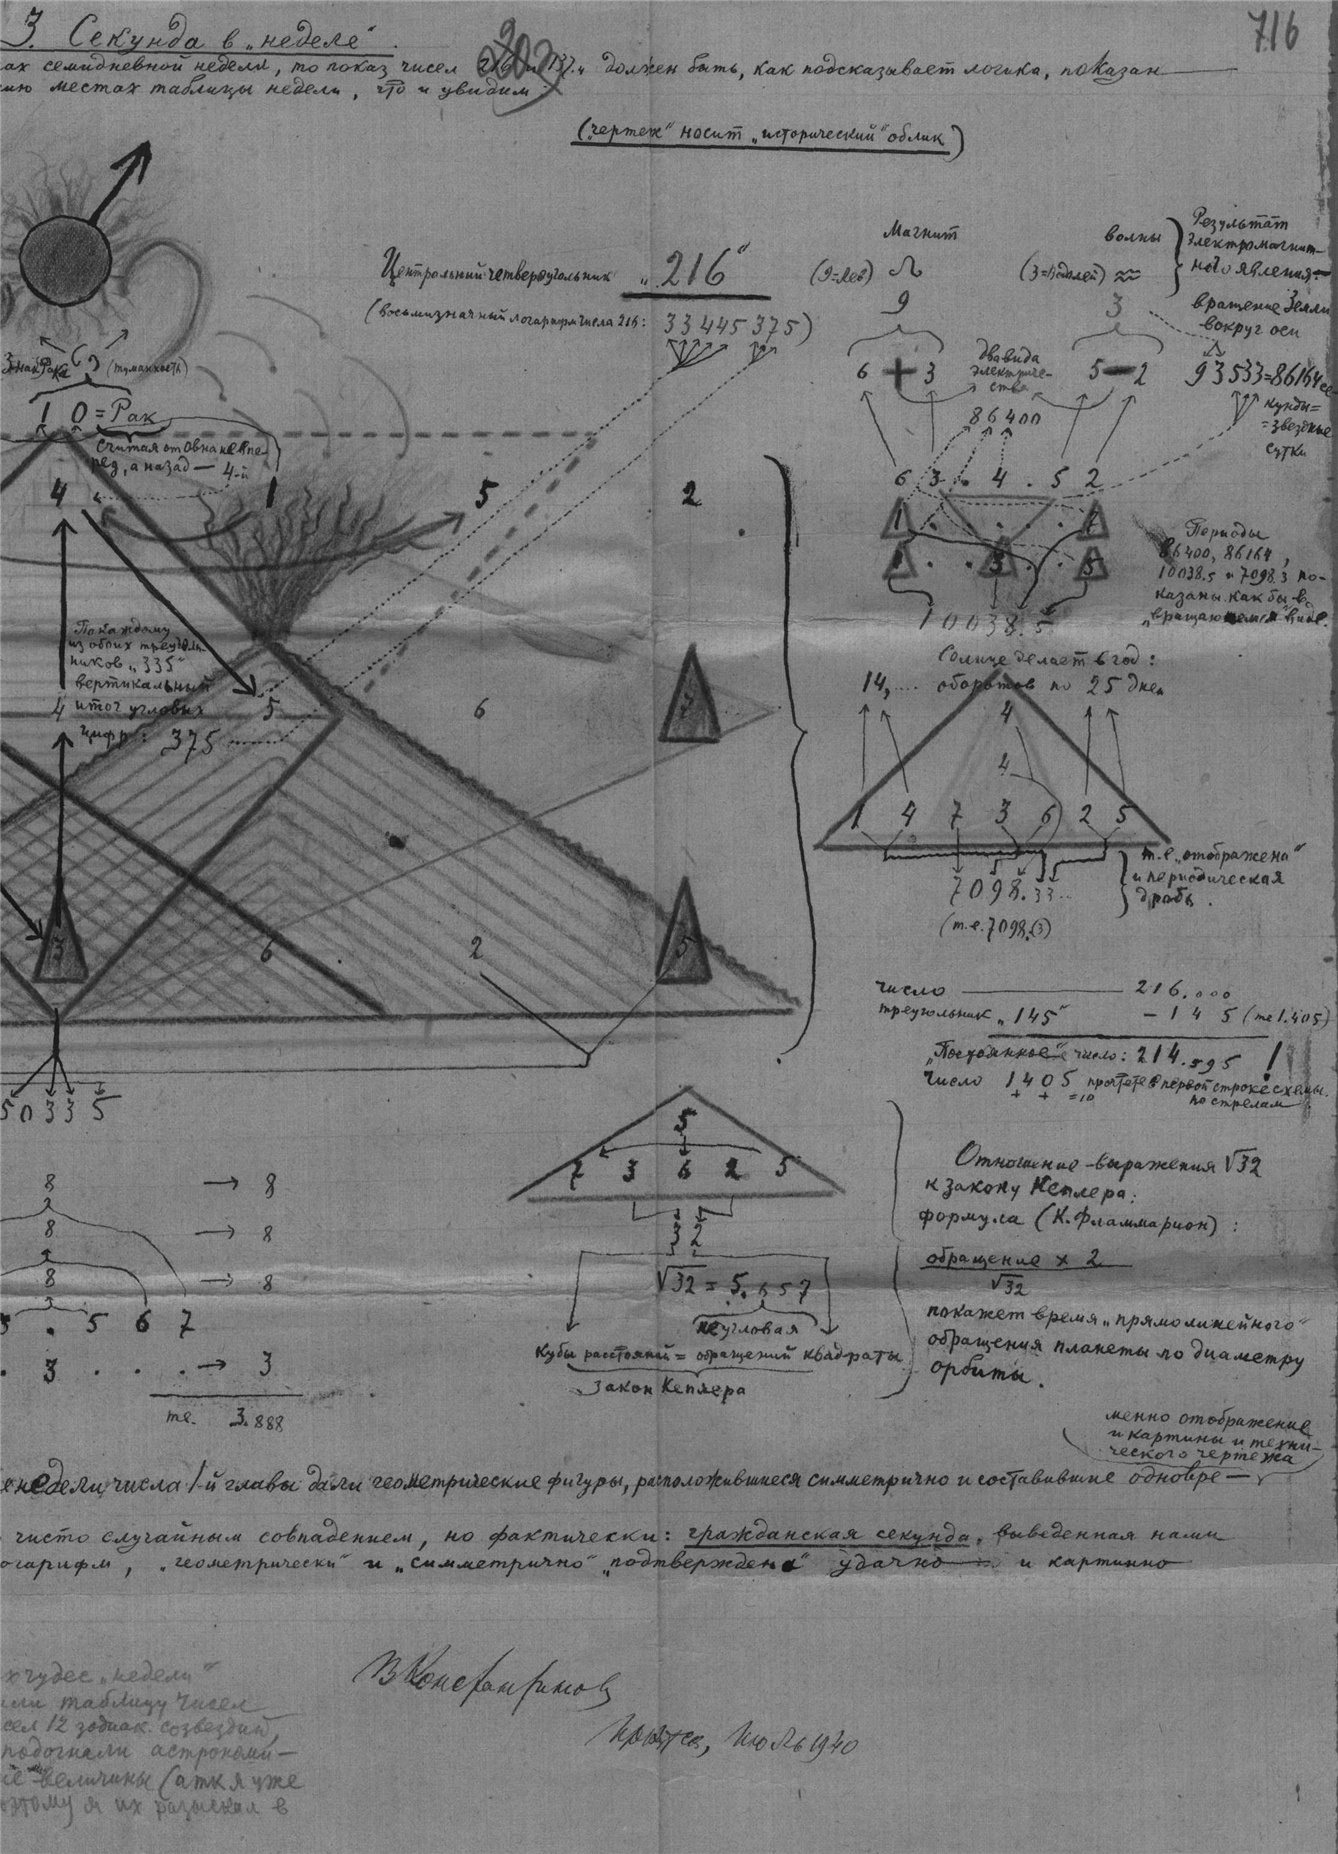 716
3. Секунда в „неделе“.
ах семидневной недели, то показ чисел 216 и 137.. должен быть, как подсказывает логика, показан
местах таблицы недели, что и увидим:
(„чертеж“ носит „исторический“ облик)
Центральный четвероугольник „216“
(восьмизначный логарифм числа 216: 33445375)
Магнит
(9=Лев) ♌
9
6 + 3
волны
(3=Водолей) ♒
3
5 — 2
два вида
электриче-
ства
86400
Результат
электромагнит-
ного явления —
вращение Земли
вокруг оси
93533=86164 се-
кунды=
=звездные
сутки
Знак Рака ♋ (туманность)
1 0 = Рак
Считая от Овна не впе-
ред, а назад — 4-й
4 1 5 2
6 3 . 4 . 5 2
1 . . . . 7
1 . . 3 . . 5
10038.5
Периоды
86400, 86164,
10038.5 и 7098.3 по-
казаны как бы в
„вращающемся“ виде.
По каждому
из обоих треуголь-
ников „335“
вертикальный
итог угловых
цифр: 375
4 5 6 7
Солнце делает в год:
14,.... оборотов по 25 дней
4
4
1 4 7 3 6 2 5
7098.33..
(т.е. 7098.(3)
т.е. „отображена“
и периодическая
дробь.
3 6 2 5
5 0 3 3 5
число — 216.000
треугольник „145“ — 1 4 5 (те 1.405)
„Постоянное“ число: 214.595 !
Число 1405 прочтете в первой строке схемы.
+ + =10 по стрелам
5
7 3 6 2 5
32
√32 = 5.657
неугловая
Кубы расстояний = обращений квадраты
Закон Кеплера
8 → 8
8 → 8
8 → 8
3 . 5 6 7
. 3 . . . → 3
те. 3.888
Отношение выражения √32
к закону Кеплера:
формула (К. Фламмарион):
обращение x 2
√32
покажет время „прямолинейного“
обращения планеты по диаметру
орбиты.
менно отображение
и картины и техни-
ческого чертежа
недели, числа 1-й главы дали геометрические фигуры, расположившиеся симметрично и составившие одновре-
чисто случайным совпадением, но фактически: гражданская секунда, выведенная нами
огарифм, „геометрически“ и „симметрично“ „подтверждена“ удачно и картинно
ВКонстантинов
Июль 1940
чудес „недели“
или таблицу чисел
сел 12 зодиак. созвездий,
подогнали астрономи-
ие величины (а т.к я уже
этому я их разыскал в